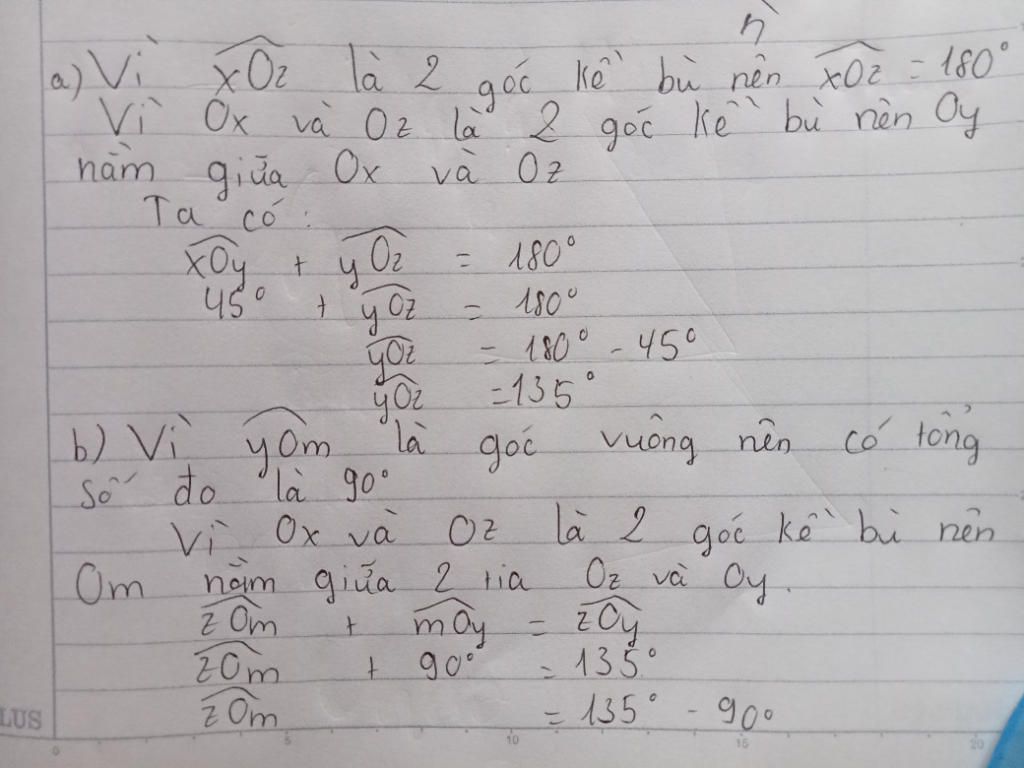 a) Vì xOz là 2 góc kề bù nên xOz = 180°
Vì Ox và Oz là 2 góc kề bù nên Oy
nằm giữa Ox và Oz
Ta có:
xOy + yOz = 180°
45° + yOz = 180°
yOz = 180° - 45°
yOz = 135°
b) Vì yOm là góc vuông nên có tổng
số đo là 90°
Vì Ox và Oz là 2 góc kề bù nên
Om nằm giữa 2 tia Oz và Oy.
zOm + mOy = zOy
zOm + 90° = 135°
zOm = 135° - 90°
LUS
0 5 10 15 20